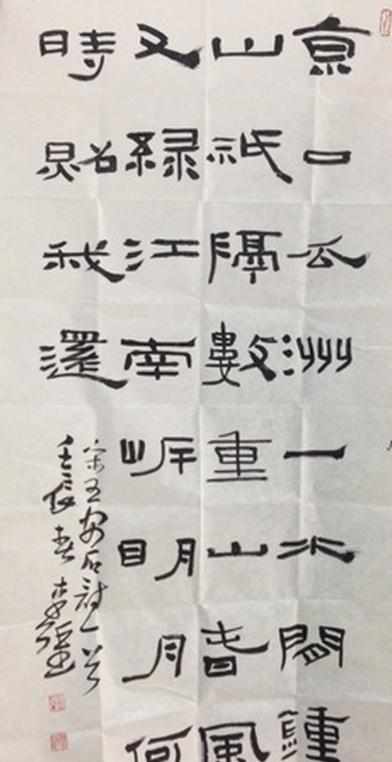 京口瓜洲一水間鍾
山祇隔數重山春風
又綠江南岸明月何
時照我還
宋王安石詩一首
壬辰春